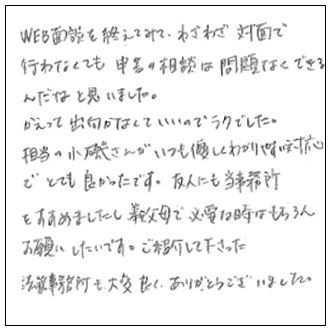 WEB面談を終えてみて、わざわざ対面で
行わなくても申告の相談は問題なくできる
んだなと思いました。
かえって出向かなくていいのでラクでした。
担当の小磯さんがいつも優しくわかりやすい対応
でとても良かったです。友人にも当事務所
をすすめましたし義父母で必要な時はもちろん
お願いしたいです。ご紹介して下さった
法律事務所も大変良く、ありがとうございました。